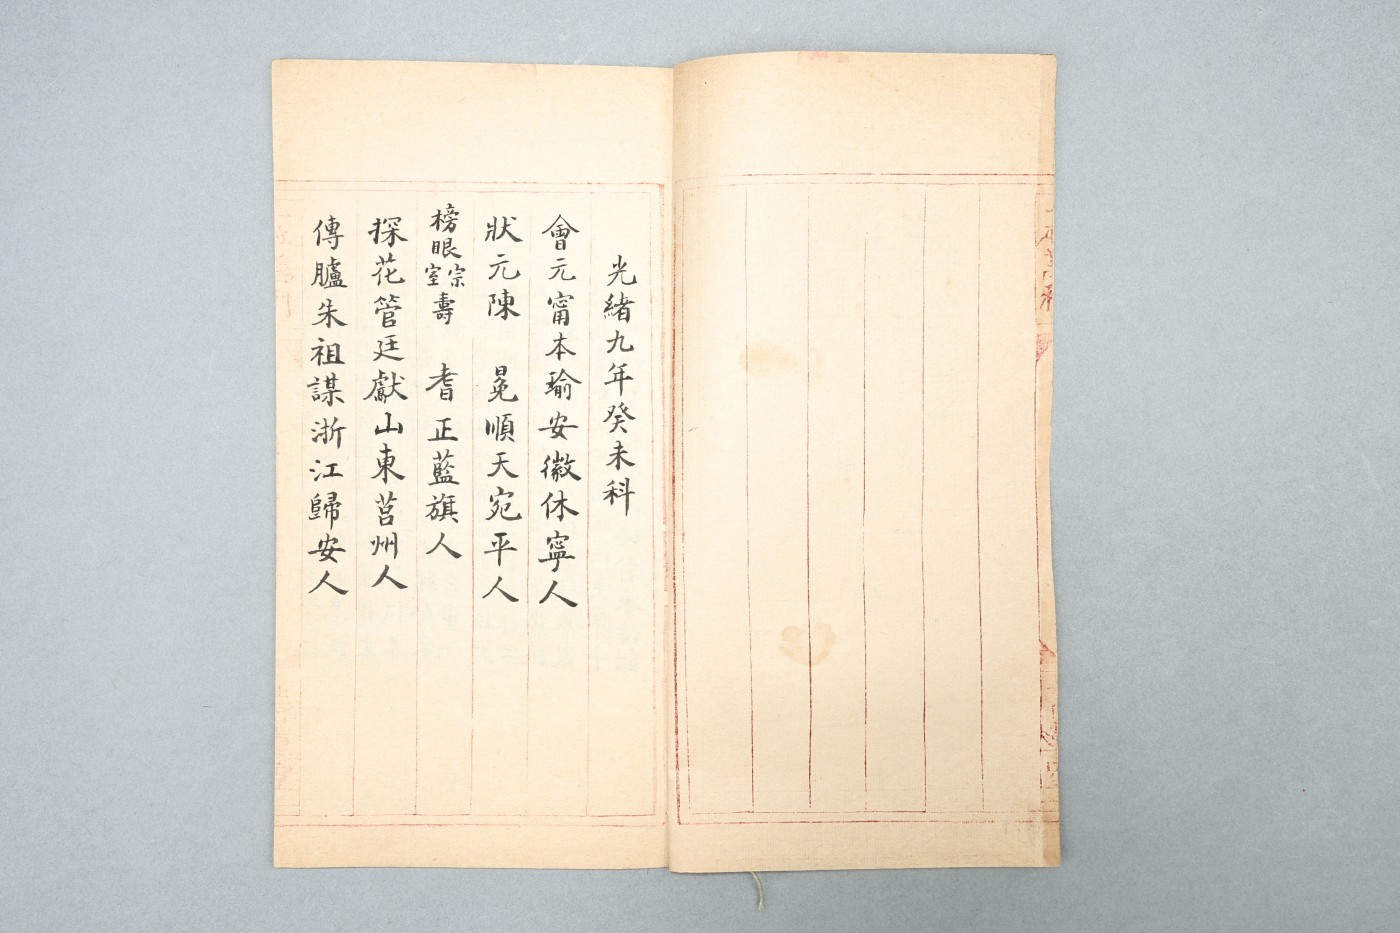 光緒九年癸未科
會元甯本瑜安徽休寧人
狀元陳　冕順天宛平人
榜眼宗室壽　耆正藍旗人
探花管廷獻山東莒州人
傳臚朱祖謀浙江歸安人